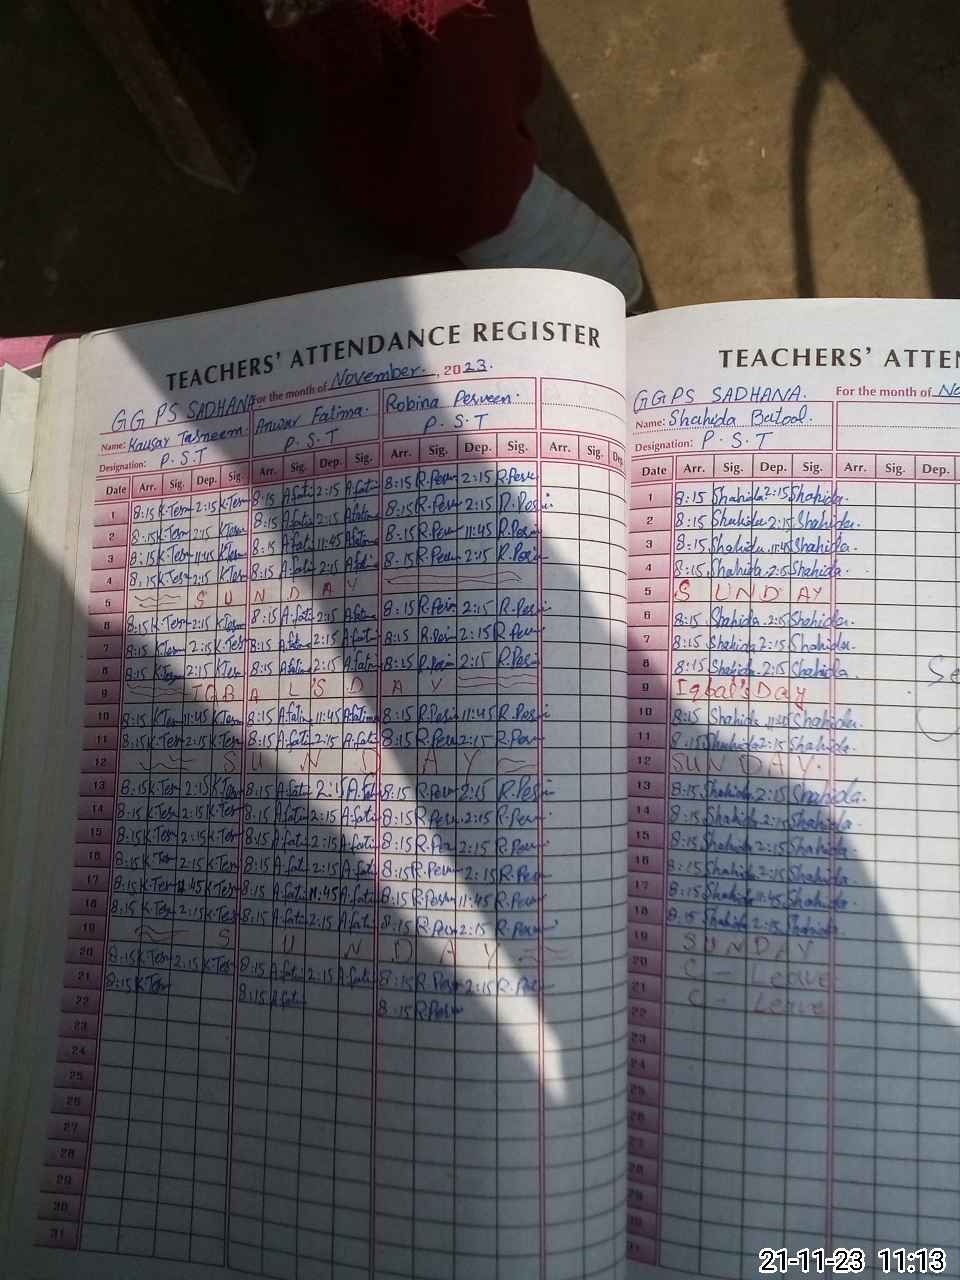 TEACHERS' ATTENDANCE REGISTER
For the month of November. , 2023.
GGPS SADHANA
Name: Kausar Tasneem Anwar Fatima. Robina Perveen.
Designation: P.S.T P.S.T P.S.T
Date Arr. Sig. Dep. Sig. Arr. Sig. Dep. Sig. Arr. Sig. Dep. Sig. Arr. Sig. Dep.
1 8:15 K.Tesn 2:15 K.Tesn 8:15 A.fati 2:15 A.fati 8:15 R.Perv 2:15 R.Perv
2 8:15 K.Tesn 2:15 K.Tesn 8:15 A.fati 2:15 A.fati 8:15 R.Perv 2:15
3 8:15 K.Tesn 11:45 K.Tesn 8:15 A.fati 11:45 A.fati 8:15 R.Perv 11:45
4 8:15 K.Tesn 2:15 K.Tesn 8:15 A.fati 2:15 A.fati 8:15 R.Perv 2:15
5 SUNDAY
6 8:15 K.Tesn 2:15 K.Tesn 8:15 A.fati 2:15 A.fati 8:15 2:15
7 8:15 K.Tesn 2:15 K.Tesn 8:15 A.fati 2:15 A.fati 8:15 2:15 R.Perv
8 8:15 K.Tesn 2:15 K.Tesn 8:15 A.fati 2:15 A.fati 8:15 2:15
9 IQBAL'S DAY
10 8:15 K.Tesn 11:45 K.Tesn 8:15 A.fati 11:45 A.fati 8:15 11:45
11 8:15 K.Tesn 2:15 K.Tesn 8:15 A.fati 2:15 A.fati 8:15 R.Perv 2:15 R.Perv
12 SUNDAY
13 8:15 K.Tesn 2:15 K.Tesn 8:15 A.fati 2:15 A.fati 8:15 R.Perv 2:15
14 8:15 K.Tesn 2:15 K.Tesn 8:15 A.fati 2:15 A.fati 8:15 R.Perv 2:15 R.Perv
15 8:15 K.Tesn 2:15 K.Tesn 8:15 A.fati 2:15 A.fati 8:15 R.Perv 2:15 R.Perv
16 8:15 K.Tesn 2:15 K.Tesn 8:15 A.fati 2:15 A.fati 8:15 R.Perv 2:15 R.Perv
17 8:15 K.Tesn 11:45 K.Tesn 8:15 A.fati 11:45 A.fati 8:15 11:45 R.Perv
18 8:15 K.Tesn 2:15 K.Tesn 8:15 A.fati 2:15 A.fati 8:15 R.Perv 2:15 R.Perv
19 SUNDAY
20 8:15 K.Tesn 2:15 K.Tesn 8:15 A.fati 2:15 A.fati 8:15 2:15
21 8:15 K.Tesn 8:15 A.fati 8:15
22
23
24
25
26
27
28
29
30
31
TEACHERS' ATTEN
GGPS SADHANA. For the month of No
Name: Shahida Batool.
Designation: P.S.T
Date Arr. Sig. Dep. Sig. Arr. Sig. Dep.
1 8:15 Shahida 2:15 Shahida
2 8:15 Shahida 2:15 Shahida.
3 8:15 Shahida 11:45 Shahida.
4 8:15 Shahida 2:15 Shahida.
5 SUNDAY
6 8:15 Shahida 2:15 Shahida.
7 8:15 Shahida 2:15 Shahida.
8 8:15 Shahida 2:15 Shahida.
9 Iqbal's Day
10 8:15 Shahida 11:45 Shahida.
11 8:15 Shahida 2:15 Shahida.
12 SUNDAY.
13 8:15 Shahida 2:15 Shahida.
14 8:15 Shahida 2:15 Shahida.
15 8:15 Shahida 2:15 Shahida.
16 8:15 Shahida 2:15 Shahida.
17 8:15 Shahida 11:45 Shahida.
18 8:15 Shahida 2:15 Shahida.
19 SUNDAY
20 C - Leave
21 C - Leave
22
23
24
25
26
27
28
29
30
31
21-11-23 11:13